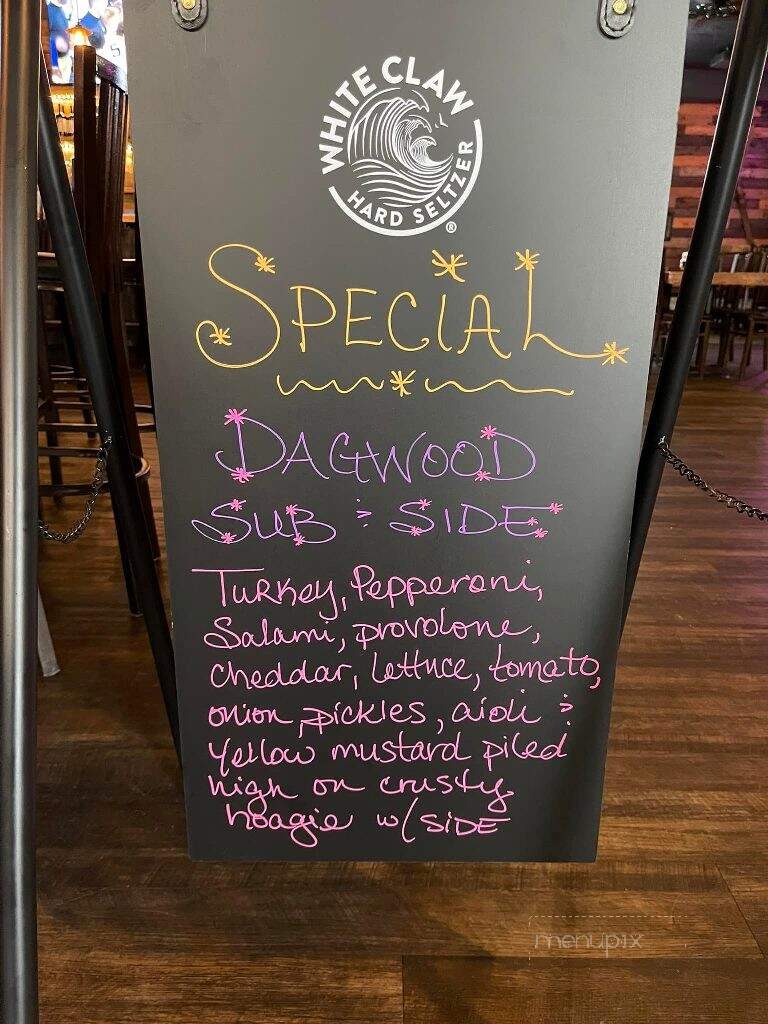 WHITE CLAW
HARD SELTZER
®
SPECIAL
DAGWOOD
SUB & SIDE
Turkey, Pepperoni,
Salami, provolone,
cheddar, lettuce, tomato,
onion, pickles, aioli &
yellow mustard piled
high on crusty
hoagie w/ SIDE
menupix